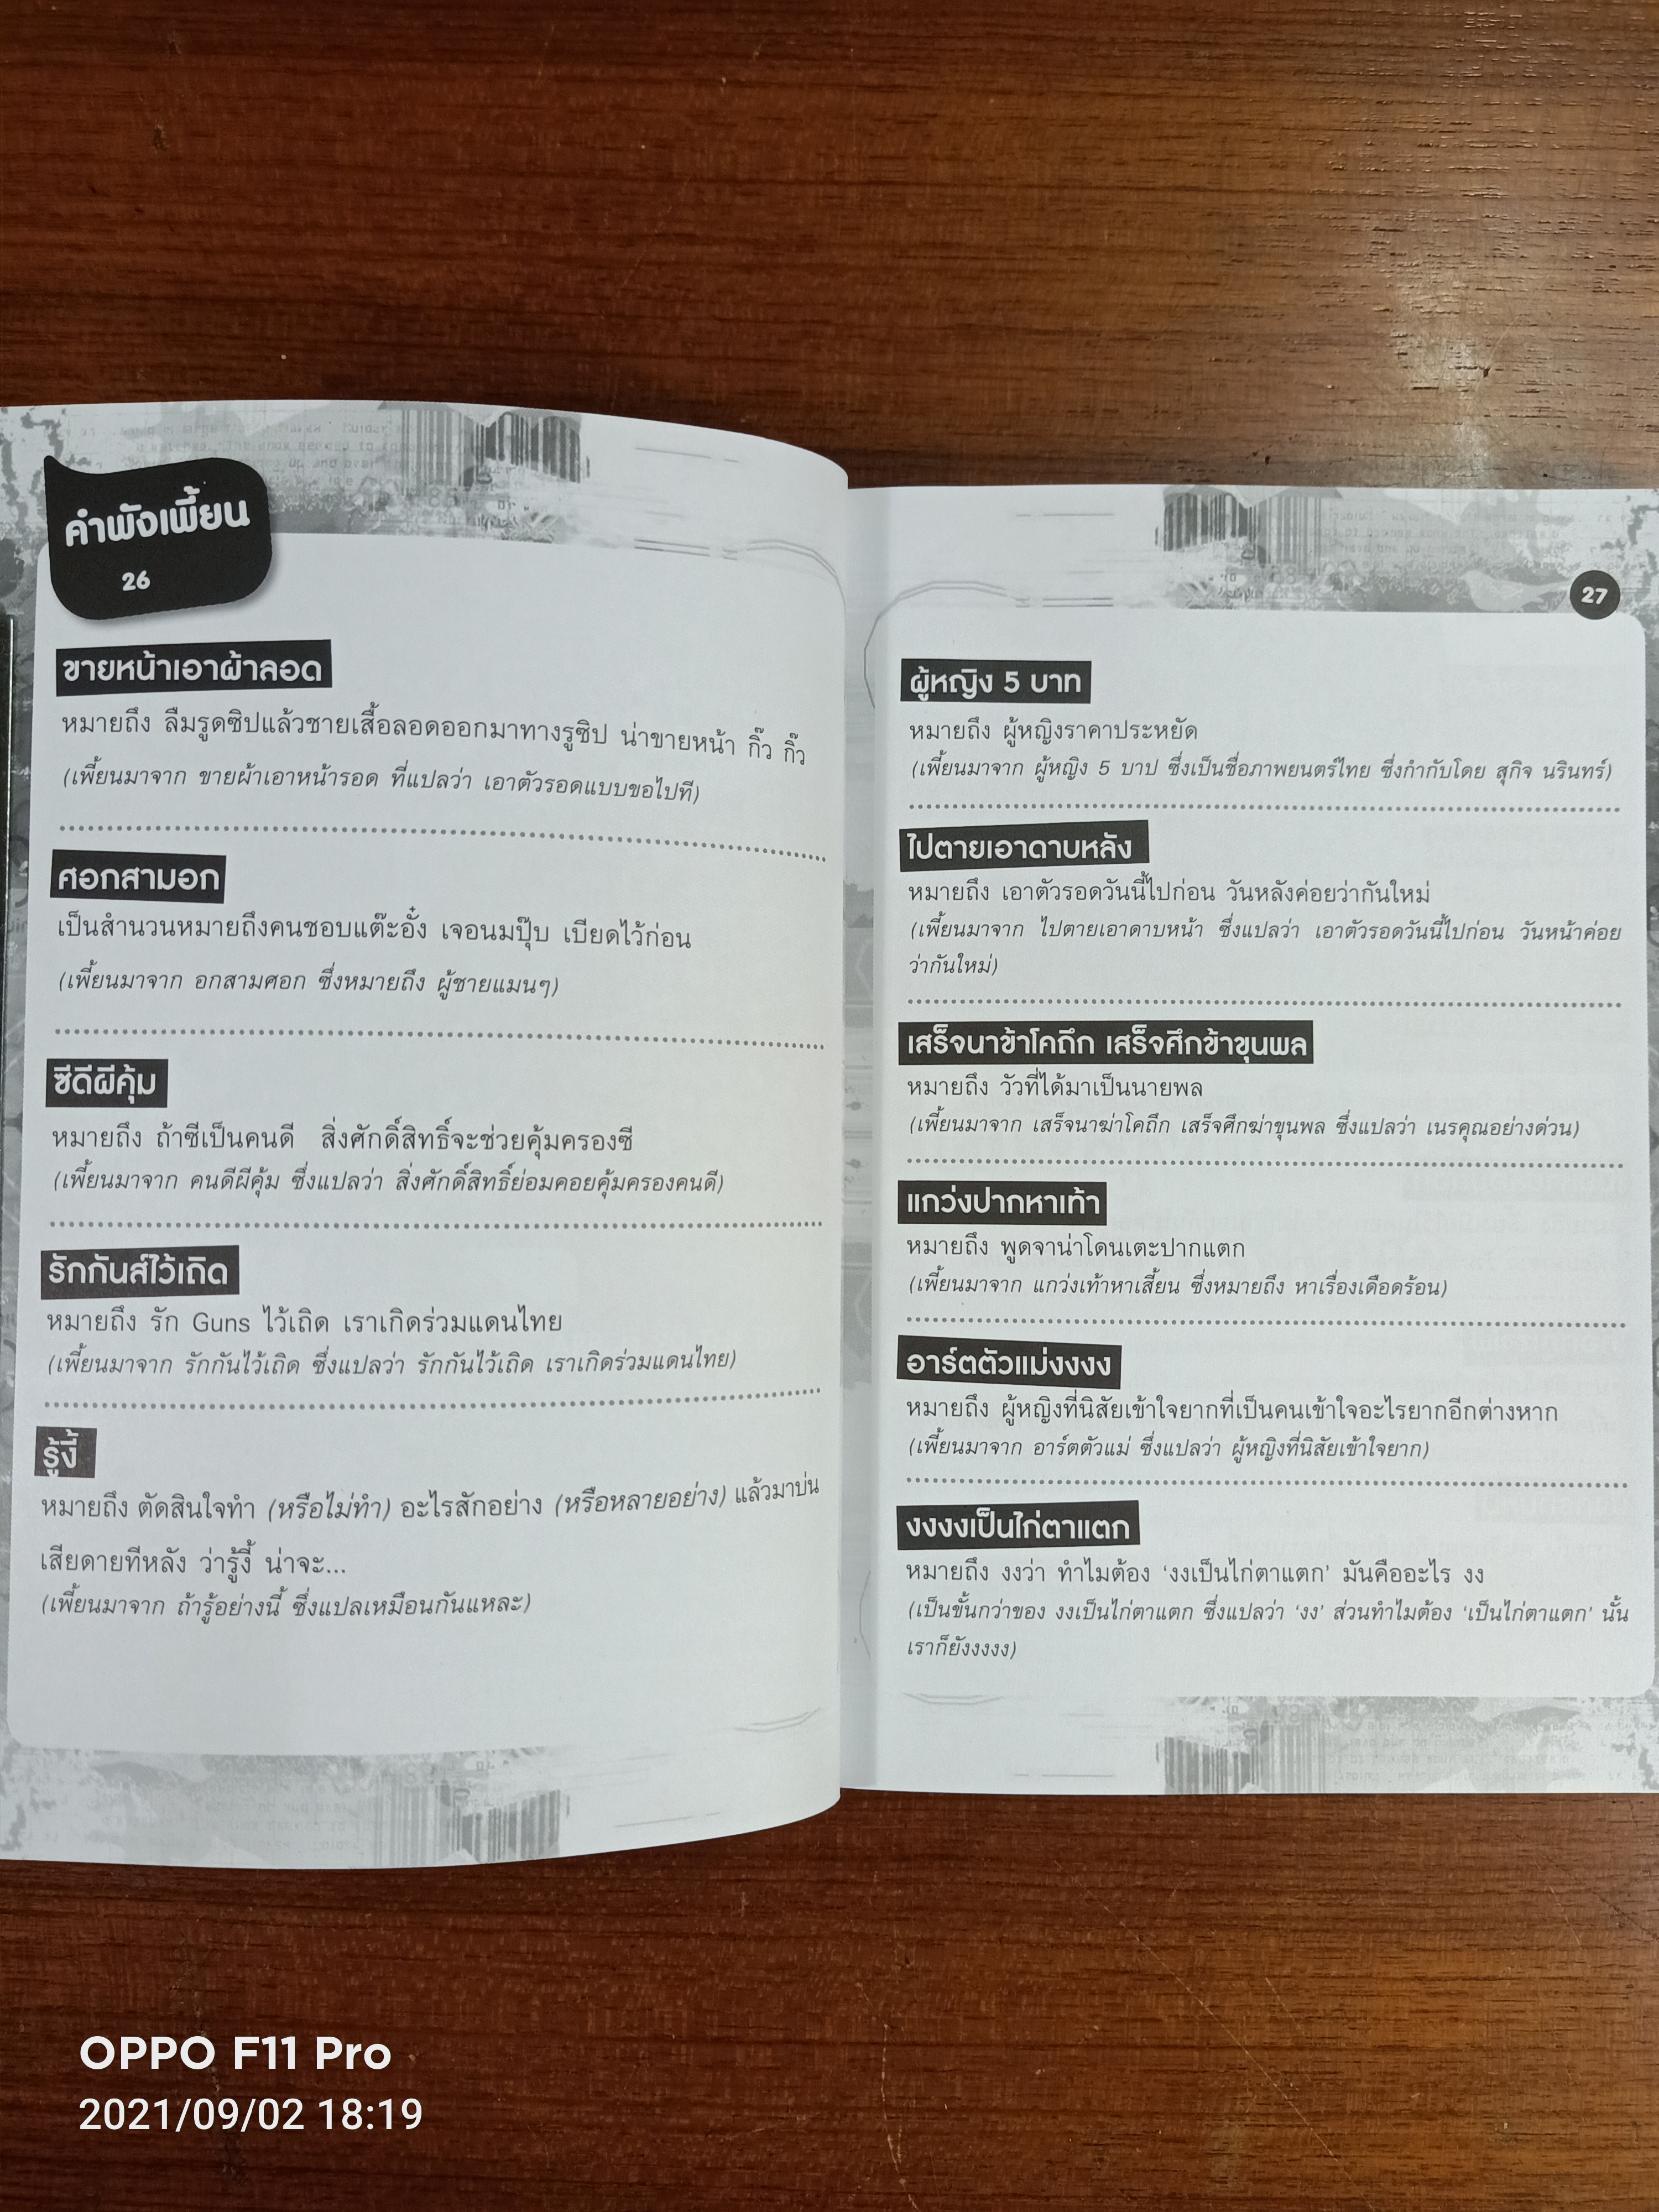 คำพังเพี้ยน
26
ขายหน้าเอาผ้าลอด
หมายถึง ลืมรูดซิปแล้วชายเสื้อลอดออกมาทางรูซิป น่าขายหน้า กิ๊ว กิ๊ว
(เพี้ยนมาจาก ขายผ้าเอาหน้ารอด ที่แปลว่า เอาตัวรอดแบบขอไปที)
ศอกสามอก
เป็นสำนวนหมายถึงคนชอบแต๊ะอั๋ง เจอนมปุ๊บ เบียดไว้ก่อน
(เพี้ยนมาจาก อกสามศอก ซึ่งหมายถึง ผู้ชายแมนๆ)
ซีดีผีคุ้ม
หมายถึง ถ้าซีเป็นคนดี สิ่งศักดิ์สิทธิ์จะช่วยคุ้มครองซี
(เพี้ยนมาจาก คนดีผีคุ้ม ซึ่งแปลว่า สิ่งศักดิ์สิทธิ์ย่อมคอยคุ้มครองคนดี)
รักกันส์ไว้เถิด
หมายถึง รัก Guns ไว้เถิด เราเกิดร่วมแดนไทย
(เพี้ยนมาจาก รักกันไว้เถิด ซึ่งแปลว่า รักกันไว้เถิด เราเกิดร่วมแดนไทย)
รู้งี้
หมายถึง ตัดสินใจทำ (หรือไม่ทำ) อะไรสักอย่าง (หรือหลายอย่าง) แล้วมาบ่น
เสียดายทีหลัง ว่ารู้งี้ น่าจะ...
(เพี้ยนมาจาก ถ้ารู้อย่างนี้ ซึ่งแปลเหมือนกันแหละ)
27
ผู้หญิง 5 บาท
หมายถึง ผู้หญิงราคาประหยัด
(เพี้ยนมาจาก ผู้หญิง 5 บาป ซึ่งเป็นชื่อภาพยนตร์ไทย ซึ่งกำกับโดย สุกิจ นรินทร์)
ไปตายเอาดาบหลัง
หมายถึง เอาตัวรอดวันนี้ไปก่อน วันหลังค่อยว่ากันใหม่
(เพี้ยนมาจาก ไปตายเอาดาบหน้า ซึ่งแปลว่า เอาตัวรอดวันนี้ไปก่อน วันหน้าค่อย
ว่ากันใหม่)
เสร็จนาข้าโคถึก เสร็จศึกข้าขุนพล
หมายถึง วัวที่ได้มาเป็นนายพล
(เพี้ยนมาจาก เสร็จนาฆ่าโคถึก เสร็จศึกฆ่าขุนพล ซึ่งแปลว่า เนรคุณอย่างด่วน)
แกว่งปากหาเท้า
หมายถึง พูดจาน่าโดนเตะปากแตก
(เพี้ยนมาจาก แกว่งเท้าหาเสี้ยน ซึ่งหมายถึง หาเรื่องเดือดร้อน)
อาร์ตตัวแม่งงงง
หมายถึง ผู้หญิงที่นิสัยเข้าใจยากที่เป็นคนเข้าใจอะไรยากอีกต่างหาก
(เพี้ยนมาจาก อาร์ตตัวแม่ ซึ่งแปลว่า ผู้หญิงที่นิสัยเข้าใจยาก)
งงงงเป็นไก่ตาแตก
หมายถึง งงว่า ทำไมต้อง 'งงเป็นไก่ตาแตก' มันคืออะไร งง
(เป็นขั้นกว่าของ งงเป็นไก่ตาแตก ซึ่งแปลว่า 'งง' ส่วนทำไมต้อง 'เป็นไก่ตาแตก' นั้น
เราก็ยังงงงง)
OPPO F11 Pro
2021/09/02 18:19